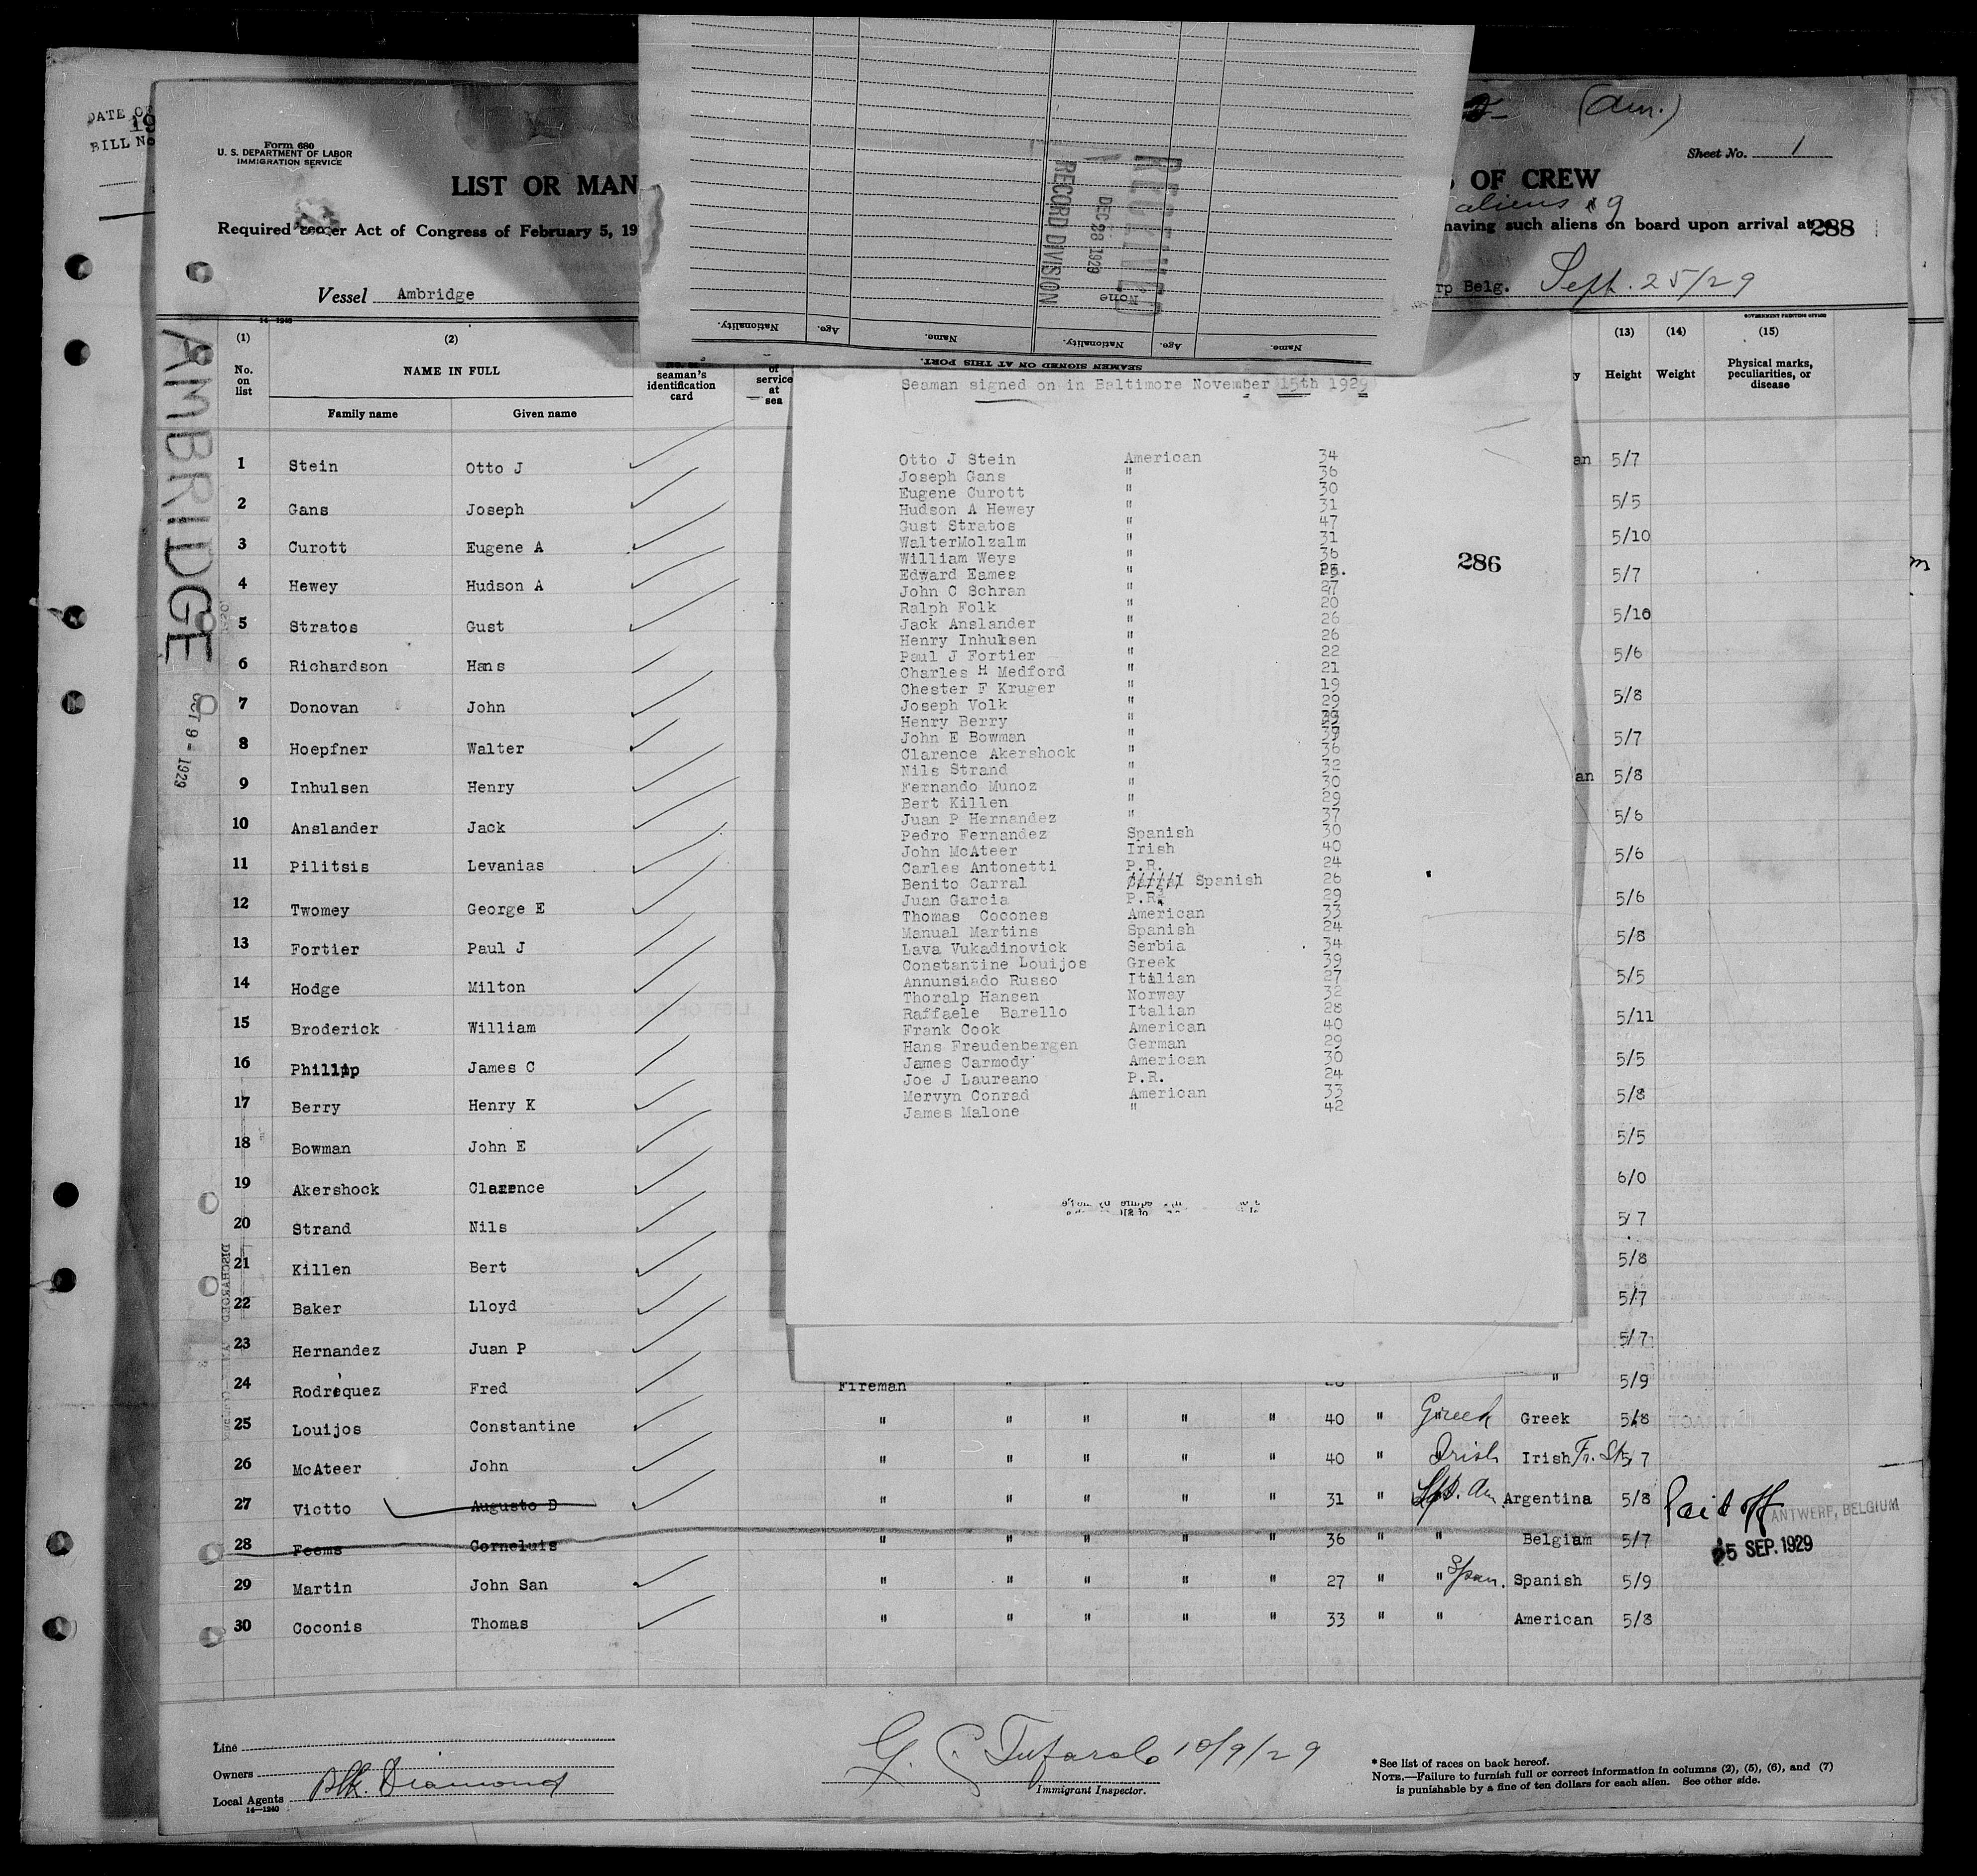 DATE OF
19
BILL No
Form 680
U. S. DEPARTMENT OF LABOR
IMMIGRATION SERVICE
(Am.)
Sheet No. 1
LIST OR MAN
OF CREW
aliens 9
Required under Act of Congress of February 5, 19
having such aliens on board upon arrival at
288
Vessel Ambridge
rp Belg. Sept. 25/29
RECEIVED
DEC 28 1929
RECORD DIVISION
None
Name. Age. Nationality. Name. Age. Nationality.
SEAMEN SIGNED ON AT THIS PORT.
14—1240
GOVERNMENT PRINTING OFFICE
(1) (2) (13) (14) (15)
No. on list
NAME IN FULL
Family name Given name
seaman's identification card
of service at sea
Height Weight Physical marks, peculiarities, or disease
AMBRIDGE
OCT 9 - 1929
DISCHARGED
1 Stein Otto J an 5/7
2 Gans Joseph 5/5
3 Curott Eugene A 5/10
4 Hewey Hudson A 5/7
5 Stratos Gust 5/10
6 Richardson Hans 5/6
7 Donovan John 5/8
8 Hoepfner Walter 5/7
9 Inhulsen Henry an 5/8
10 Anslander Jack 5/6
11 Pilitsis Levanias 5/6
12 Twomey George E 5/6
13 Fortier Paul J 5/8
14 Hodge Milton 5/5
15 Broderick William 5/11
16 Phillip James C 5/5
17 Berry Henry K 5/8
18 Bowman John E 5/5
19 Akershock Clarence 6/0
20 Strand Nils 5/7
21 Killen Bert 5/8
22 Baker Lloyd 5/7
23 Hernandez Juan P 5/7
24 Rodrequez Fred Fireman " " " " " 5/9
25 Louijos Constantine " " " " " 40 " Greek Greek 5/8
26 McAteer John " " " " " 40 " Irish Irish Fr. St. 5/7
27 Victto Augusto D " " " " " 31 " Sp. Am. Argentina 5/8 Paid off
ANTWERP, BELGIUM
28 Feems Corneluis " " " " " 36 " " Belgiam 5/7
25 SEP. 1929
29 Martin John San " " " " " 27 " " Span. Spanish 5/9
30 Coconis Thomas " " " " " 33 " " American 5/8
Seaman signed on in Baltimore November 15th 1929
286
Otto J Stein American 34
Joseph Gans " 36
Eugene Curott " 30
Hudson A Hewey " 31
Gust Stratos " 47
WalterMolzalm " 31
William Weys " 36
Edward Eames "
John C Schran " 27
Ralph Folk " 20
Jack Anslander " 26
Henry Inhulsen " 26
Paul J Fortier " 22
Charles H Medford " 21
Chester F Kruger " 19
Joseph Volk " 29
Henry Berry "
John E Bowman " 39
Clarence Akershock " 36
Nils Strand " 32
Fernando Munoz " 30
Bert Killen " 29
Juan P Hernandez " 37
Pedro Fernandez Spanish 30
John McAteer Irish 40
Carles Antonetti P.R. 24
Benito Carral Spanish 26
Juan Garcia P.R. 29
Thomas Cocones American 33
Manual Martins Spanish 24
Lava Vukadinovick Serbia 34
Constantine Louijos Greek 39
Annunsiado Russo Itilian 27
Thoralp Hansen Norway 32
Raffaele Barello Italian 28
Frank Cook American 40
Hans Freudenbergen German 29
James Carmody American 30
Joe J Laureano P.R. 24
Mervyn Conrad American 33
James Malone " 42
Line
Owners
Local Agents Blk. Diamond
14—1240
G. C. Tufarolo 10/9/29
Immigrant Inspector.
* See list of races on back hereof.
NOTE.—Failure to furnish full or correct information in columns (2), (5), (6), and (7)
is punishable by a fine of ten dollars for each alien. See other side.